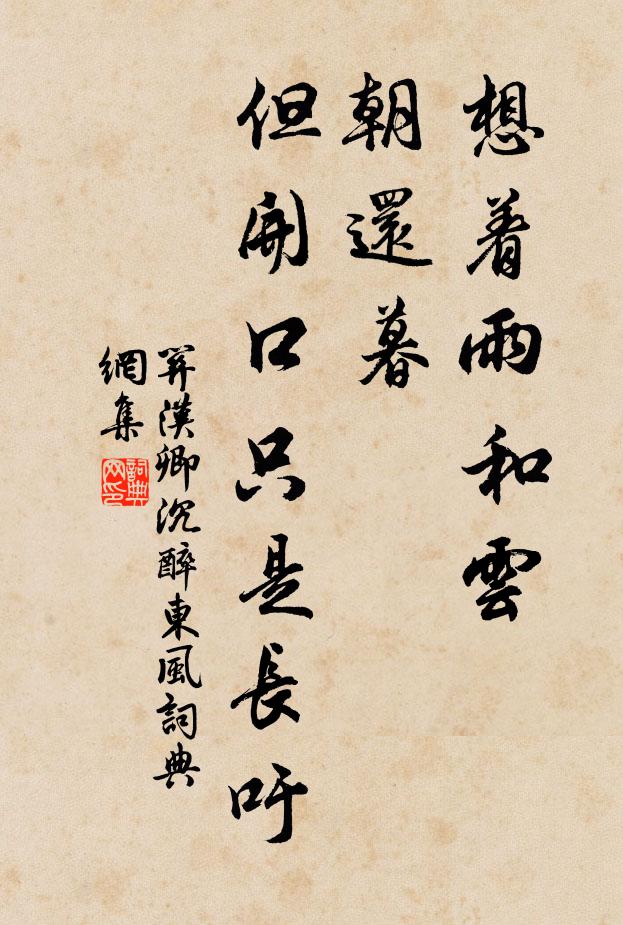 想着雨和雲
朝還暮
但開口只是長吁
關漢卿沉醉東風詞典
網集
詞典網印